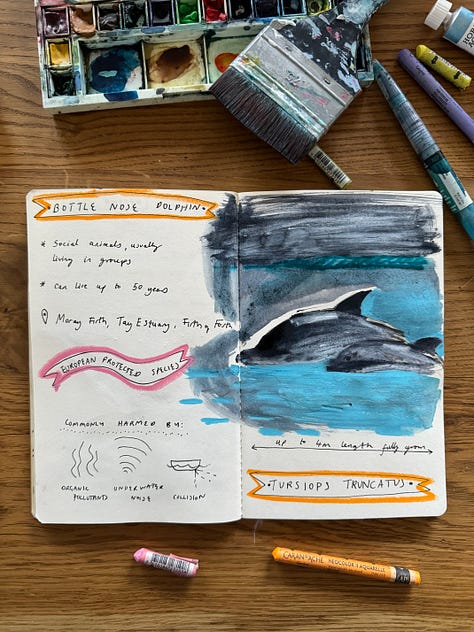 BOTTLE NOSE DOLPHIN
* Social animals, usually
living in groups
* Can live up to 50 years
Moray Firth, Tay Estuary, Firth of Forth
EUROPEAN PROTECTED SPECIES
COMMONLY HARMED BY:
ORGANIC
POLLUTANTS
UNDERWATER
NOISE
COLLISION
up to 4m length fully grown
TURSIOPS TRUNCATUS
CARAN D'ACHE NEOCOLOR II AQUARELLE